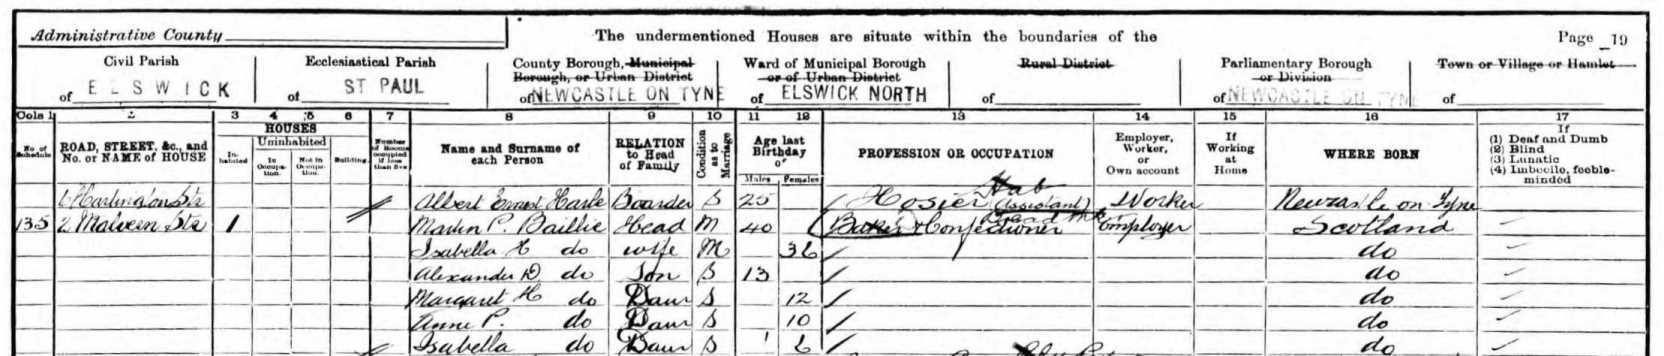 Administrative County The undermentioned Houses are situate within the boundaries of the Page 19
Civil Parish Ecclesiastical Parish County Borough, Municipal Borough, or Urban District Ward of Municipal Borough or of Urban District Rural District Parliamentary Borough or Division Town or Village or Hamlet
of ELSWICK of ST PAUL of NEWCASTLE ON TYNE of ELSWICK NORTH of of NEWCASTLE ON TYNE of
Cols 1 2 3 4 5 6 7 8 9 10 11 12 13 14 15 16 17
No. of Schedule ROAD, STREET, &c., and No. or NAME of HOUSE HOUSES Inhabited Uninhabited In Occupation. Not in Occupation. Building. Number of Rooms occupied if less than five Name and Surname of each Person RELATION to Head of Family Condition as to Marriage Age last Birthday of Males Females PROFESSION OR OCCUPATION Employer, Worker, or Own account If Working at Home WHERE BORN If (1) Deaf and Dumb (2) Blind (3) Lunatic (4) Imbecile, feeble-minded
Albert Ernest Harle Boarder S 25 Hosier (Assistant) Worker Newcastle on Tyne
135 2 Malvern Str 1 P. Baillie Head M 40 Baker & Confectioner Employer Scotland
Isabella H do wife M 36 do
Alexander D do Son S 13 do
Margaret H do Daur S 12 do
Anne P. do Daur S 10 do
Isabella do Daur S 6 do